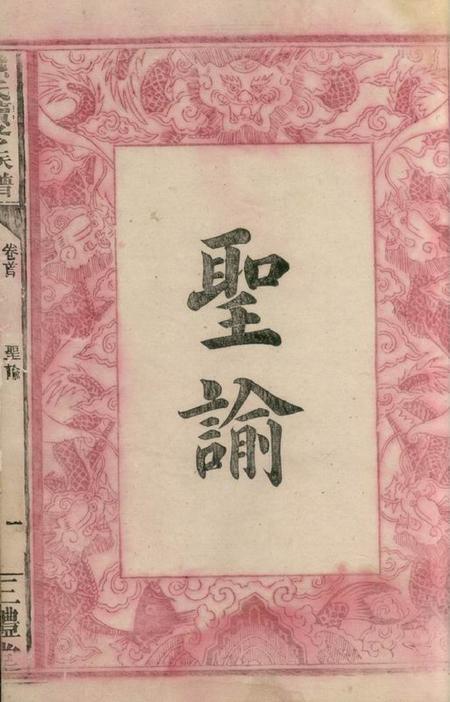 聖諭
族譜
卷首
聖諭
一
三禮堂